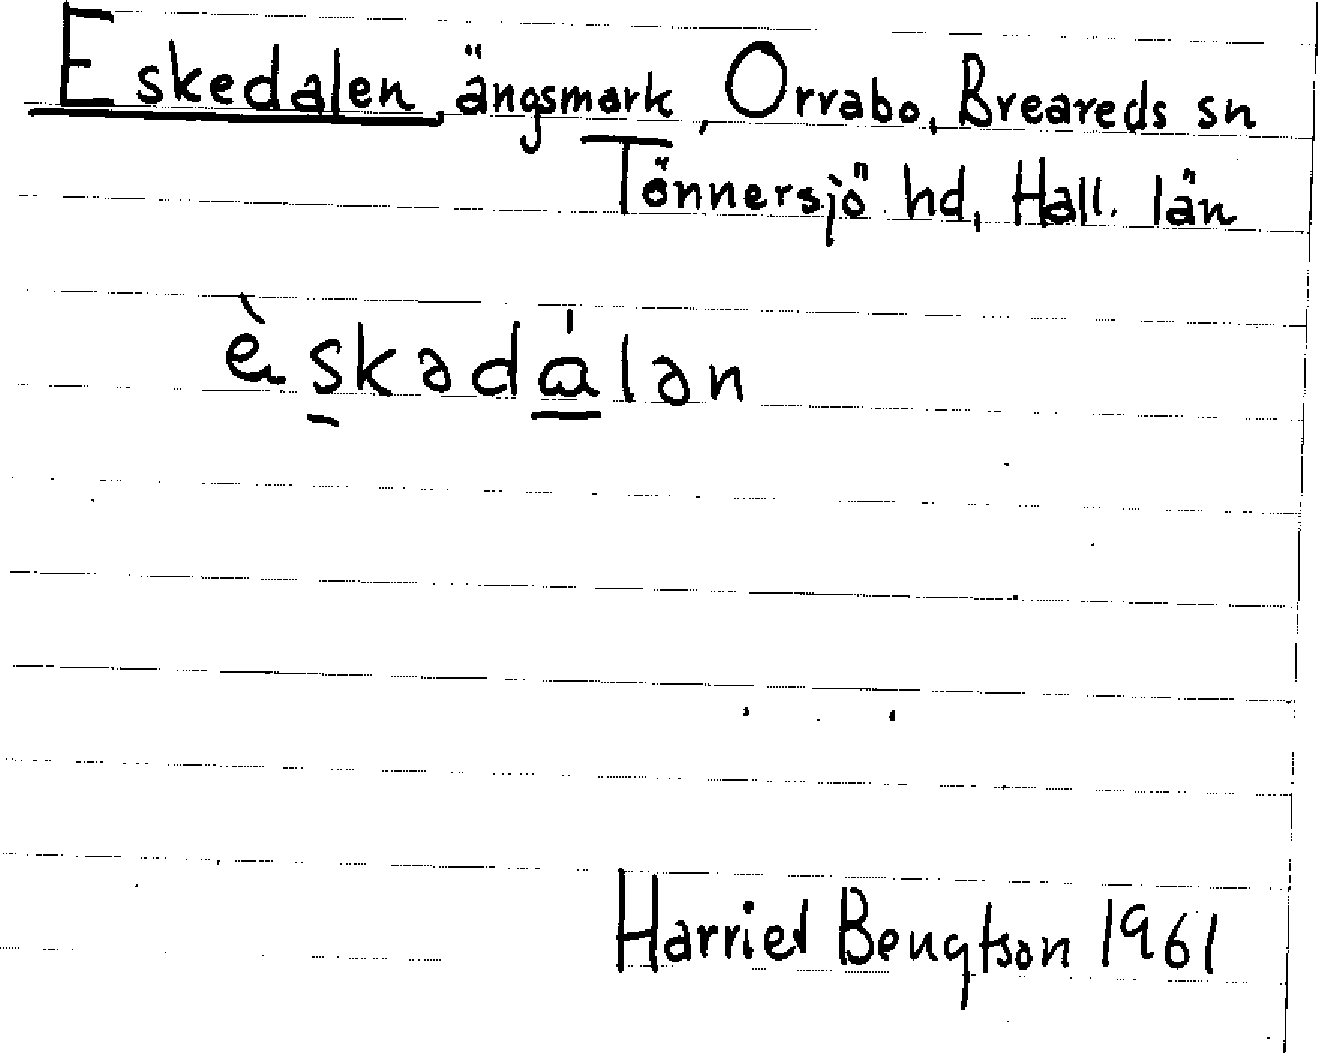 Eskedalen, ängsmark, Orrabo, Breareds sn
Tönnersjö hd, Hall. län
èskədálən
Harriet Bengtson 1961